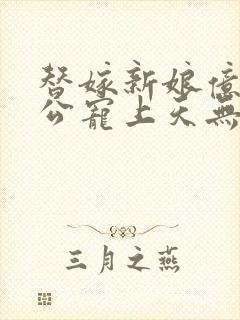 替嫁新娘億
公寵上天無
三月之燕